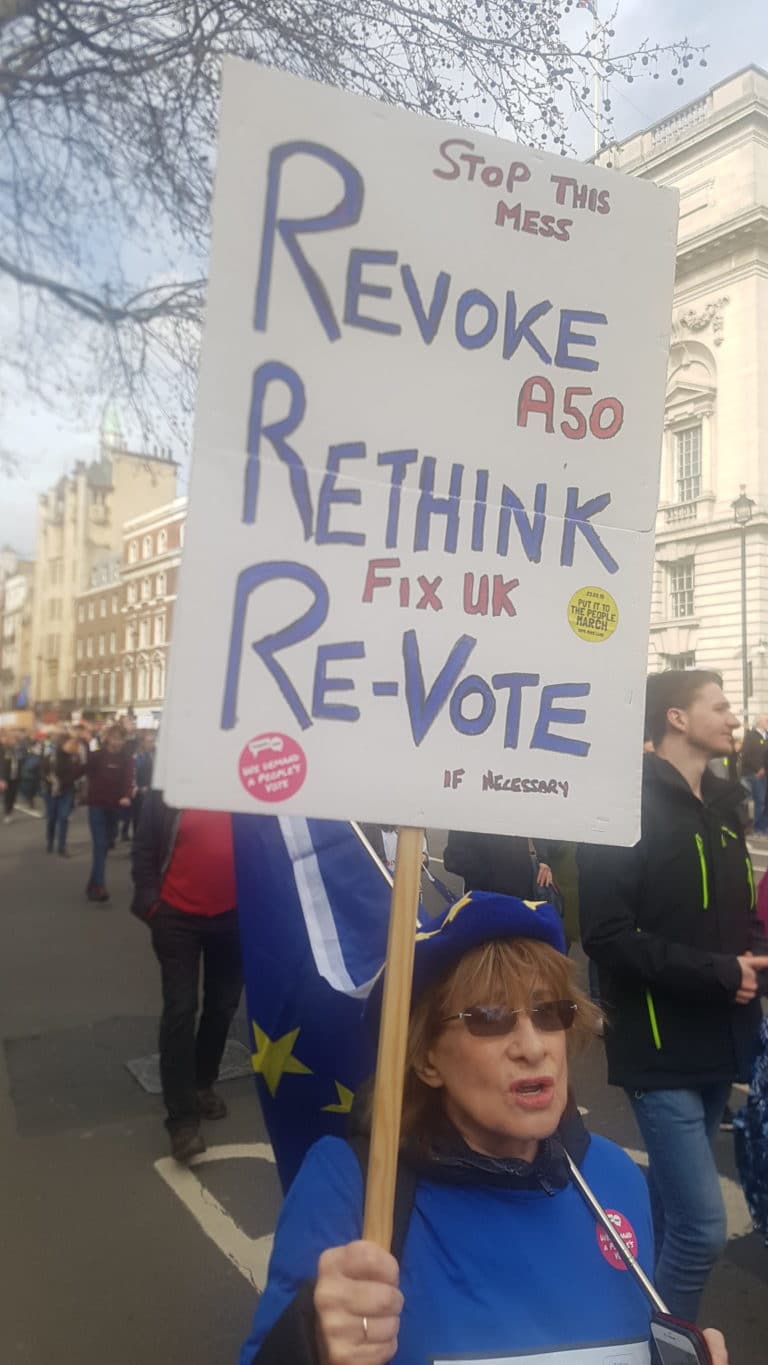 STOP THIS
MESS
REVOKE
A50
RETHINK
FIX UK
PUT IT TO
THE PEOPLE
MARCH
RE-VOTE
WE DEMAND
A PEOPLE'S
VOTE
IF NECESSARY
WE DEMAND
A PEOPLE'S
VOTE